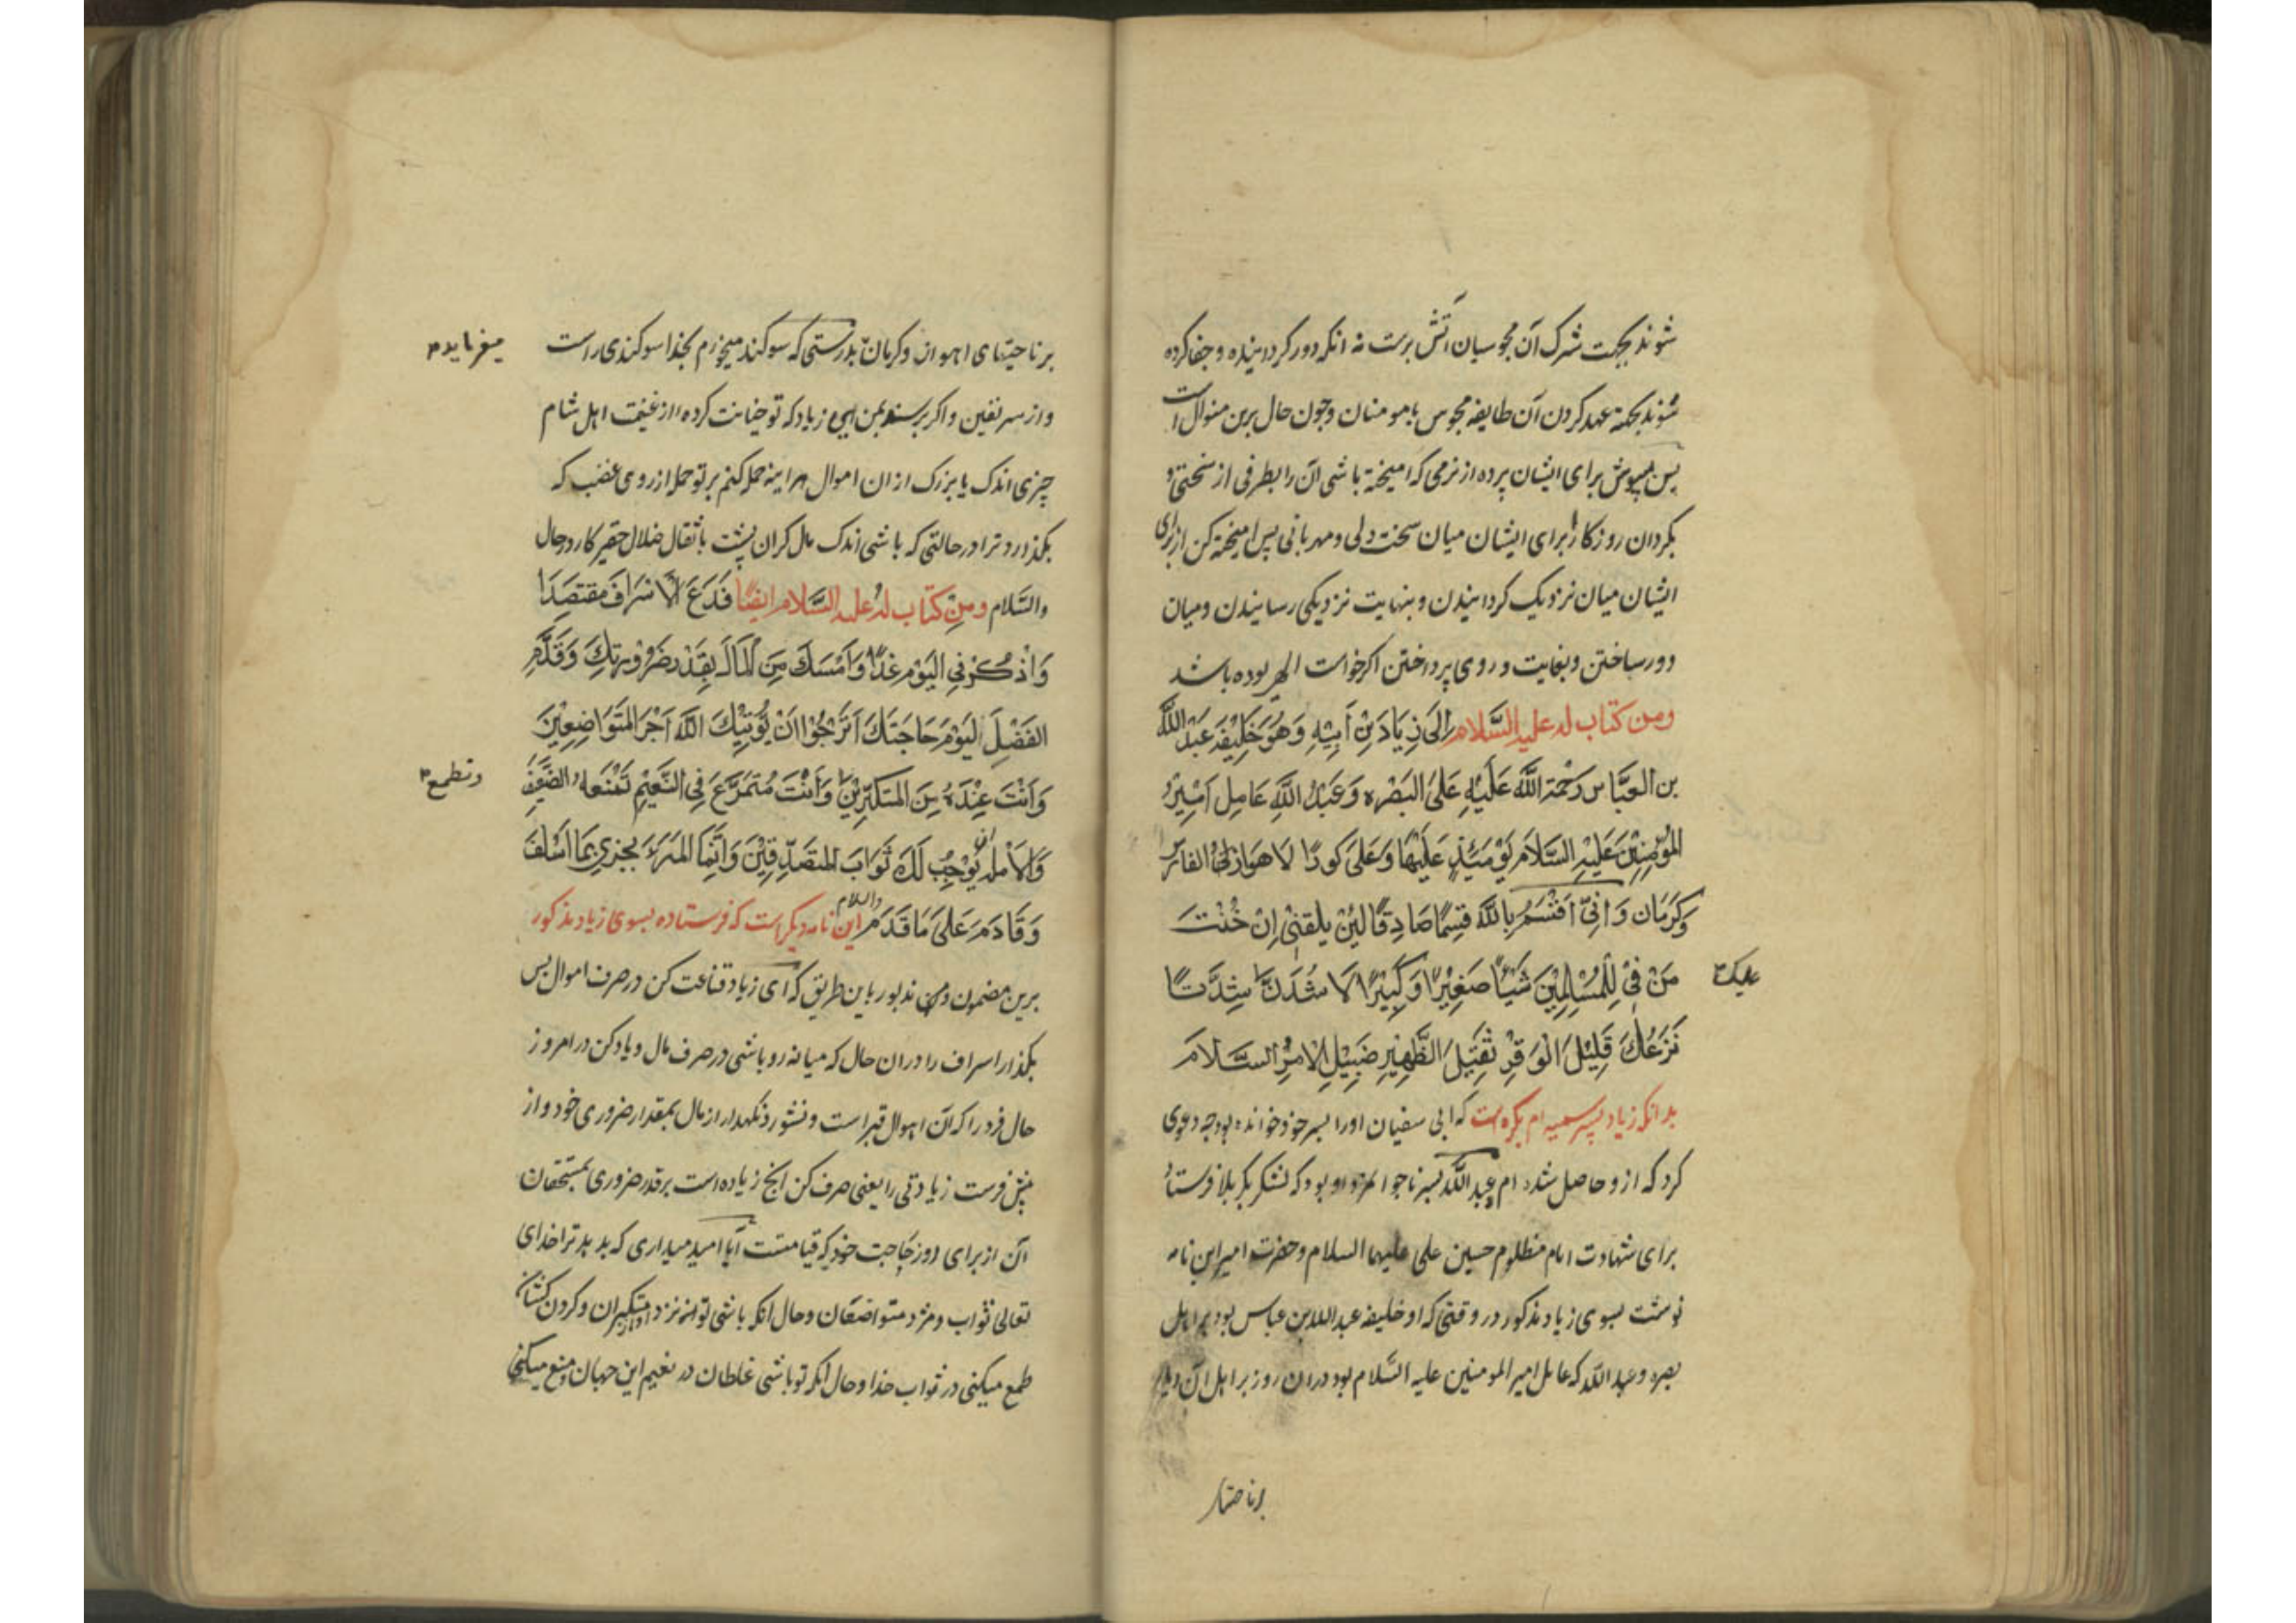 شوند بجهت شرک آن مجوسیان آتش پرست نه انکه دور کردانیده و جفا کرده
شوند بجهة عهد کردن آن طایفه مجوس بامومنان وچون حال برین منوال است
پس بپوش برای ایشان پرده از نرمی که امیخته باشی آن را بطرفی از سختی و
بکردان روزکار را برای ایشان میان سخت دلی ومهربانی پس امیخته کن از برای
ایشان میان نزدیک کردانیدن و بنهایت نزدیکی رسانیدن ومیان
دور ساختن وبغایت دوری پرداختن اکر خواست الهی بوده باشد
ومن کتاب له علیه السَّلام اِلیَ زِیَادَ بْنِ اَبِیْهِ وَهُوَ خَلِیْفَه عَبْدُ اللَّه
بن العبَّاس رَحْمَة اللَّه عَلَیْهِ عَلیَ البَصْره وَعَبْدُ اللَّهِ عَامِل اَمِیْرِ
المُؤمِنِیْنَ عَلَیْهِ السَّلَام یَوْمَئِذٍ عَلَیْهَا وَعَلیَ کورًا لاهواز الفارس
وَکَرَمَان وَ اِنِّیْ اُقْسِمُ بِاللَّه قَسِمًا صَادِقًا لَئِنْ یلقنی اِنْ خُنْتَ
مَنْ فِیْ لِلْمُسْلِمِیْنَ شَیْئًا صَغِیْرًا وَ کَبِیْرًا لَا شُدَنَّ شِدَّتًا
علیک
نَزَعُكَ قَلِیْلَ الْوَقِرْ ثَقِیَلَ الظَّهِیْرِ ضَبِیْلَ الْاَمِرْ السَّلَامَ
بدانکه زیاد پسر سمیه ام بکره است که ابی سفیان اورا پسر خود خوانده بود چه دعوی
کرد که ازو حاصل شده ام و عبد اللّه پسر ناجوانمرد او بود که لشکر بکربلا فرستاد
برای شهادت امام مظلوم حسین علی علیهما السلام وحضرت امیر این نامه
نوشت بسوی زیاد مذکور در وقتی که او خلیفه عبد الله بن عباس بود بر اهل
بصره وعبد اللّه که عامل امیر المومنین علیه السَّلام بود دران روز بر اهل آن دیار
برناحیتهای اهواز و کرمان بدرستی که سوکند میخورم بخدا سوکندی راست
میفرماید
واز سر یقین واکر برسد بمن ای زیاد که تو خیانت کرده از غنیمت اهل شام
چیزی اندک یا بزرک از ان اموال هراینه حمله کنم بر تو حمله از روی غضب که
بکذارد ترا در حالتی که باشی اندک مال کران پشت باثقال ضلال حقیر کار در حال
والسَّلام ومِنْ کتاب له علیه السَّلام ایضًا فَدَعَ الْاسْرَافَ مقتصَدَا
وَاذْکُرْ فِی الیَوْم غدًا وَاَمْسَكَ مِنَ الْمَالَ بِقَدْر ضَرُوْرتِكَ وَقَدَّمِ
الفَضْلَ لیَوْمَ حَاجَتَكَ اَتَرْجُوْا اَنْ یُؤْتِیْكَ اللَّه اَجْرَ المُتَوَاضِعِیْنَ
وَاَنْتَ عِنْدَهُ مِنَ المُتَکَبِّرِیْنَ وَاَنْتَ مُتَمَرَّغَ فِی النَّعِیْمِ تَمْنَعه الضَّعِفَ
وتطمع
وَالاَرمله اَنْ یُوْجِبْ لَكَ ثَوَابَ المتصَدِّقِیْنَ وَاِنَّمَا المَرْءَ یجزی بِمَا اَسْلَفَ
وَقَادَمَ عَلیَ مَا قَدَمَ والسلام این نامه دیکر است که فرستاده بسوی زیاد مذکور
برین مضمون باین طریق که ای زیاد قناعت کن در صرف اموال پس
بکذار اسراف را دران حال که میانه رو باشی در صرف مال ویاد کن در امروز
حال فردا را که آن اهوال قبر است و نشور و نکهدار از مال بمقدار ضروری خود و از
پیش فرست زیادتی را یعنی صرف کن آنچ زیاده است بر قدر ضروری بمستحقان
آن از برای روز حاجت خود که قیامتست آیا امید میداری که بدهد ترا خدای
تعالی ثواب ومزد متواضعان وحال انکه باشی تو نزد او از متکبران و کردن کشان
طمع میکنی در ثواب خدا وحال انکه تو باشی غلطان در نعیم این جهان ومنع میکنی